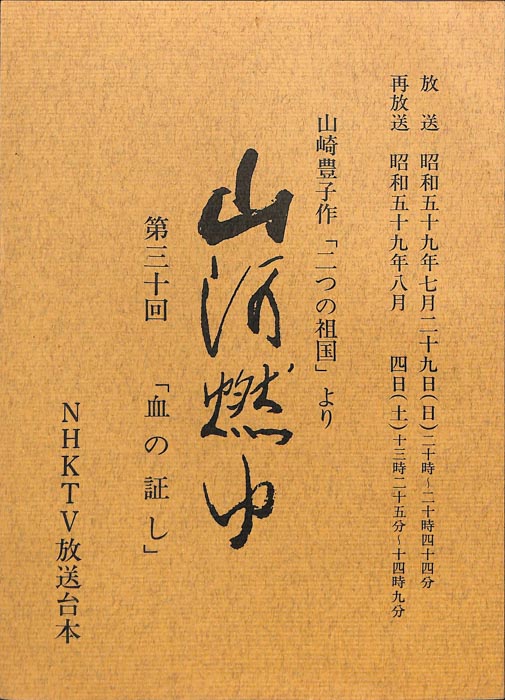 放送 昭和五十九年七月二十九日(日)二十時~二十時四十四分
再放送 昭和五十九年八月 四日(土)十三時二十五分~十四時九分
山崎豊子作「二つの祖国」より
山河燃ゆ
第三十回 「血の証し」
NHKTV放送台本